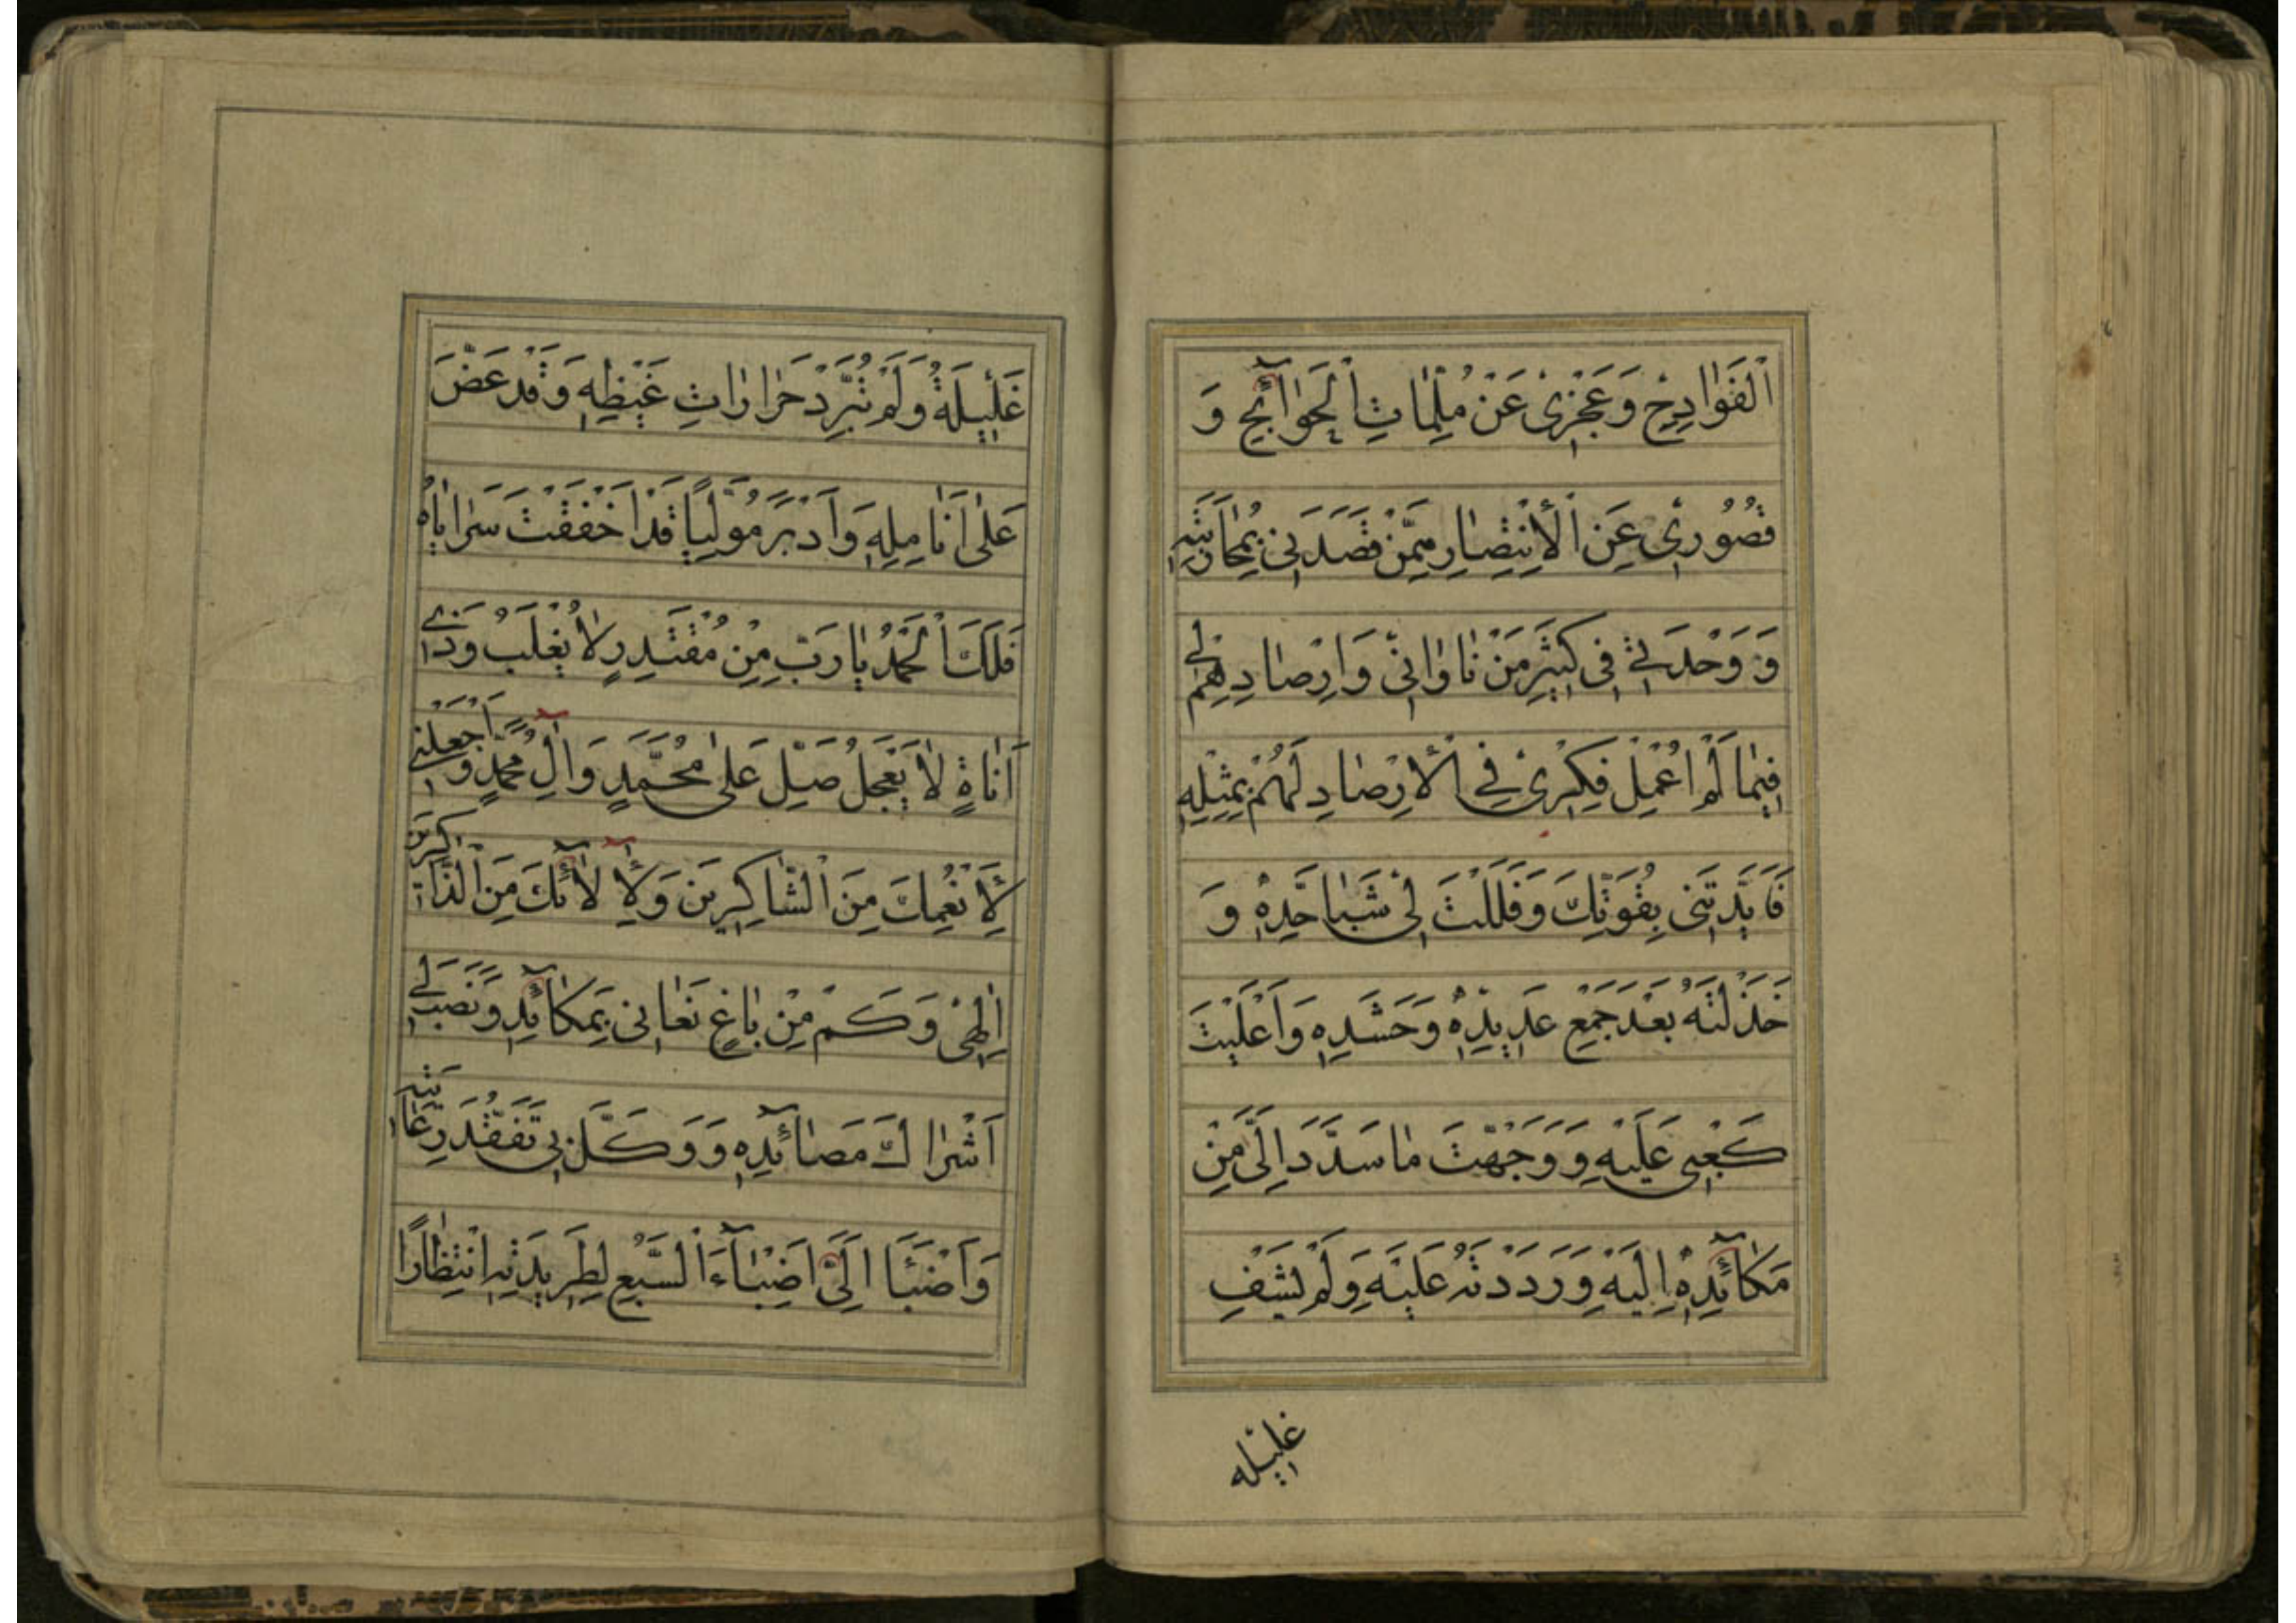 اَلْفَوٰادِحِ وَعَجْزِیْ عَنْ مُلِمّٰاتِ اْلحَوٰآئِجِ وَ
قُصُوُرِیْ عَنِ اْلاِنْتِصٰارِ مِمَّنْ قَصَدَنِیْ بِمُحٰارَبَتِهٖ
وَ وَحْدَتِیْ فِیْ كَثِیْرِ مَنْ نٰاوٰانِیْ وَ اِرْصٰادِهِمْ لِیْ
فِیْمٰا لَمْ اُعْمِلْ فِكْرِیْ فِی اْلاِرْصٰادِ لَهُمْ بِمِثْلِهٖ
فَاَیَّدْتَنِیْ بِقُوَّتِكَ وَفَلَلْتَ لِیْ شَبٰا حَدِّهٖ وَ
خَذَلْتَهُ بَعْدَ جَمْعِ عَدِیْدِهٖ وَحَشَدِهٖ وَ اَعْلَیْتَ
كَعْبِیْ عَلَیْهِ وَ وَجَّهْتَ مٰا سَدَّدَ اِلَیَّ مِنْ
مَكٰآئِدِهٖ اِلَیْهِ وَ رَدَدْتَهُ عَلَیْهِ وَلَمْ یَشْفِ
غلیله
غَلِیْلَهُ وَلَمْ تَبْرُدْ حَرٰارٰاتِ غَیْظِهٖ وَقَدْ عَضَّ
عَلٰی اَنٰامِلِهٖ وَ اَدْبَرَ مُوَلِّیًا قَدْ اَخْفَقَتْ سَرٰایٰاهُ
فَلَكَ اْلحَمْدُ یٰا رَبِّ مِنْ مُقْتَدِرٍ لاٰ یُغْلَبُ وَذِیْ
اَنٰاةٍ لاٰ یَعْجَلُ صَلِّ عَلٰی مُحَمَّدٍ وَ آلِ مُحَمَّدٍ وَ اجْعَلْنِیْ
لِاَنْعُمِكَ مِنَ الشّٰاكِرِیْنَ وَ لِآلاٰئِكَ مِنَ الذّٰاكِرِیْنَ
اِلٰهِیْ وَكَمْ مِنْ بٰاغٍ بَغٰانِیْ بِمَكٰآئِدِهٖ وَنَصَبَ لِیْ
اَشْرٰاكَ مَصٰآئِدِهٖ وَ وَكَّلَ بِیْ تَفَقُّدَ رِعٰایَتِهٖ
وَ اَضْبَأَ اِلَیَّ اِضْبٰآءَ السَّبُعِ لِطَرِیْدَتِهٖ اِنْتِظٰارًا